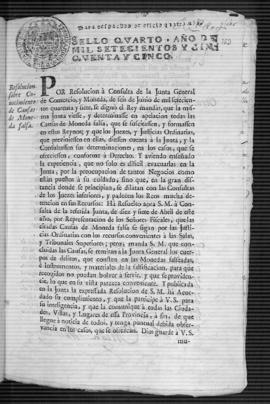 SELLO QVARTO, AÑO DE
MIL SETECIENTOS Y CIN-
QVENTA Y CINCO.
Resolucion
sobre Co-
nocimiento
de Causas
de Mone-
da falsa.
POR Resolucion à Consulta de la Junta General
de Comercio, y Moneda, de seis de Junio de mil setecien-
tos quarenta y siete, se dignò el Rey mandar, que la mis-
ma Junta viesse, y determinasse en apelacion todas las
Causas de Moneda falsa, que se suscitassen, y formassen
en estos Reynos; y que los Jueces, y Justicias Ordinarias,
que previniessen en ellas, diessen cuenta à la Junta, y la
Consultassen sus determinaciones, en los casos, que se
ofreciessen, conforme à Derecho. Y aviendo enseñado
la experiencia, que no solo es dificil evacuarlas en la
Junta, por la preocupacion de tantos Negocios como
estàn puestos à su cuidado, sino que, en la gran dis-
tancia donde se principian, se dilatan con las Consultas
de los Jueces inferiores, y padecen los Reos mucha de-
tencion en sus Recursos: Ha Resuelto aora S. M. à Con-
sulta de la referida Junta, de diez y siete de Abril de este
año, por Representacion de los Señores Fiscales, que las
citadas Causas de Moneda falsa se sigan por las Jus-
ticias Ordinarias con los recursos convenientes à las Salas,
y Tribunales Superiores; pero, manda S. M. que con-
cluidas las Causas, se remitan à la Junta General los cuer-
pos de delitos, que consten en las Monedas falseadas,
è Instrumentos, y materiales de la falsificacion, para que
recogidos no puedan bolver à servir, y que se providen-
cie, lo que en su vista parezca conveniente. Y publicada
en Junta la expressada Resolucion de S. M. ha Acor-
dado su cumplimiento, y que la participe à V. S. para
su inteligencia, y que la comunique à todas las Ciuda-
des, Villas, y Lugares de essa Provincia, à fin, de que
llegue à noticia de todos, y tenga puntual debida obser-
vancia en los casos, que se ofrezcan. Dios guarde à V. S.
mu-